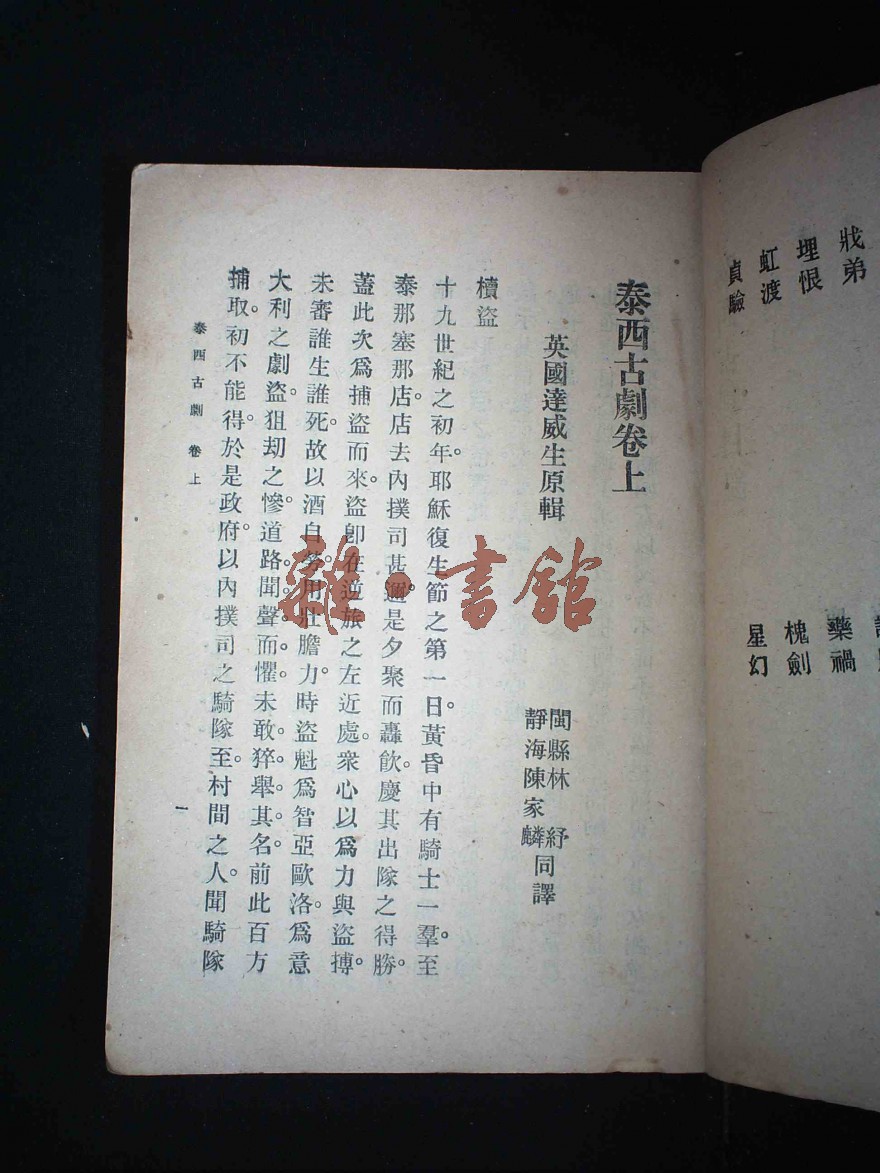 戕弟
埋恨
虹渡
貞驗
藥禍
槐劍
星幻
泰西古劇卷上
英國達威生原輯
閩縣林紓
靜海陳家麟同譯
櫝盜
十九世紀之初年。耶穌復生節之第一日黃昏中有騎士一羣。至
泰那塞那店。店去內撲司甚邇。是夕聚而轟飲。慶其出隊之得勝。
蓋此次爲捕盜而來。盜卽在逆旅之左近處。衆心以爲力與盜搏。
未審誰生誰死。故以酒自勞。用壯膽力。時盜魁爲智亞歐洛。爲意
大利之劇盜。狙劫之慘。道路聞聲而懼。未敢猝舉其名。前此百方
捕取。初不能得。於是政府。以內撲司之騎隊至。村間之人。聞騎隊
泰西古劇 卷上
一
雜·書館